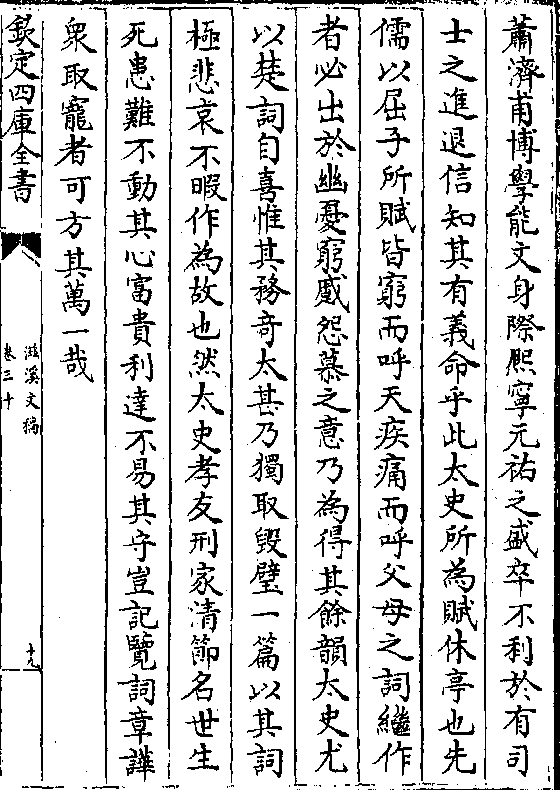 蕭濟甫博學能文身際熈寧元祐之盛卒不利於有司
士之進退信知其有義命乎此太史所為賦休亭也先
儒以屈子所賦皆窮而呼天疾痛而呼父母之詞繼作
者必出於幽憂窮戚怨慕之意乃為得其餘韻太史尤
以楚詞自喜惟其務竒太甚乃獨取毀璧一篇以其詞
極悲哀不暇作為故也然太史孝友刑家清節名世生
死患難不動其心富貴利達不易其守豈記覽詞章譁
衆取寵者可方其萬一哉
欽定四庫全書
滋溪文稿
卷三十
十九